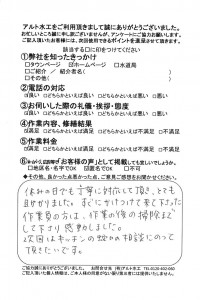 アルト水工をご利用頂きまして誠にありがとうございました。
おいそがしい所誠に申し訳ございませんが、アンケートにご協力お願いします。
ご記入頂いたお客様には、次回使用できるポイントを進呈させて頂きます。
該当する□に印をつけてください
①弊社を知ったきっかけ
□タウンページ □ホームページ □水道局
□ご紹介( / 紹介者名: )
□その他( )
②電話の対応
□良い □どちらかといえば良い □どちらかといえば悪い □悪い
③お伺いした際の礼儀・挨拶・態度
□良い □どちらかといえば良い □どちらかといえば悪い □悪い
④作業内容、修繕結果
□満足 □どちらかといえば満足 □どちらかといえば不満足 □不満足
⑤作業料金
□満足 □どちらかといえば満足 □どちらかといえば不満足 □不満足
「お客様の声」として掲載しても宜しいでしょうか
◆その他、良かった点悪かった点、ご意見ご感想をお聞かせください。
休みの日でも丁寧に対応して頂き、とても
助かりました。すぐにかけつけて来て下さった
作業員の方は、作業の後の掃除まで
して下さり感動しました。
次回はキッチンの
相談にのって
頂きたいです。
ご協力誠にありがとうございました。